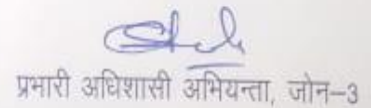 प्रभारी अधिशासी अभियन्ता, जोन–3